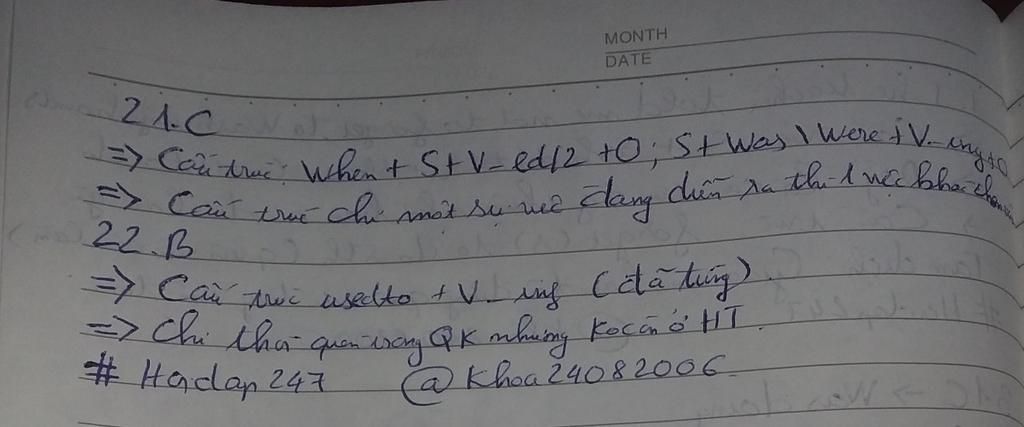 MONTH
DATE
21.C
=> Cấu trúc: When + S+V_ed/2 +O; S+Was \ Were +V_ing+O
=> Cấu trúc chỉ một sự việc đang diễn ra thì 1 việc khác chen
22.B
=> Cấu trúc usedto +V_ing (đã từng)
=> Chỉ thói quen trong QK nhưng ko còn ở HT.
# Hoidap247 @Khoa24082006